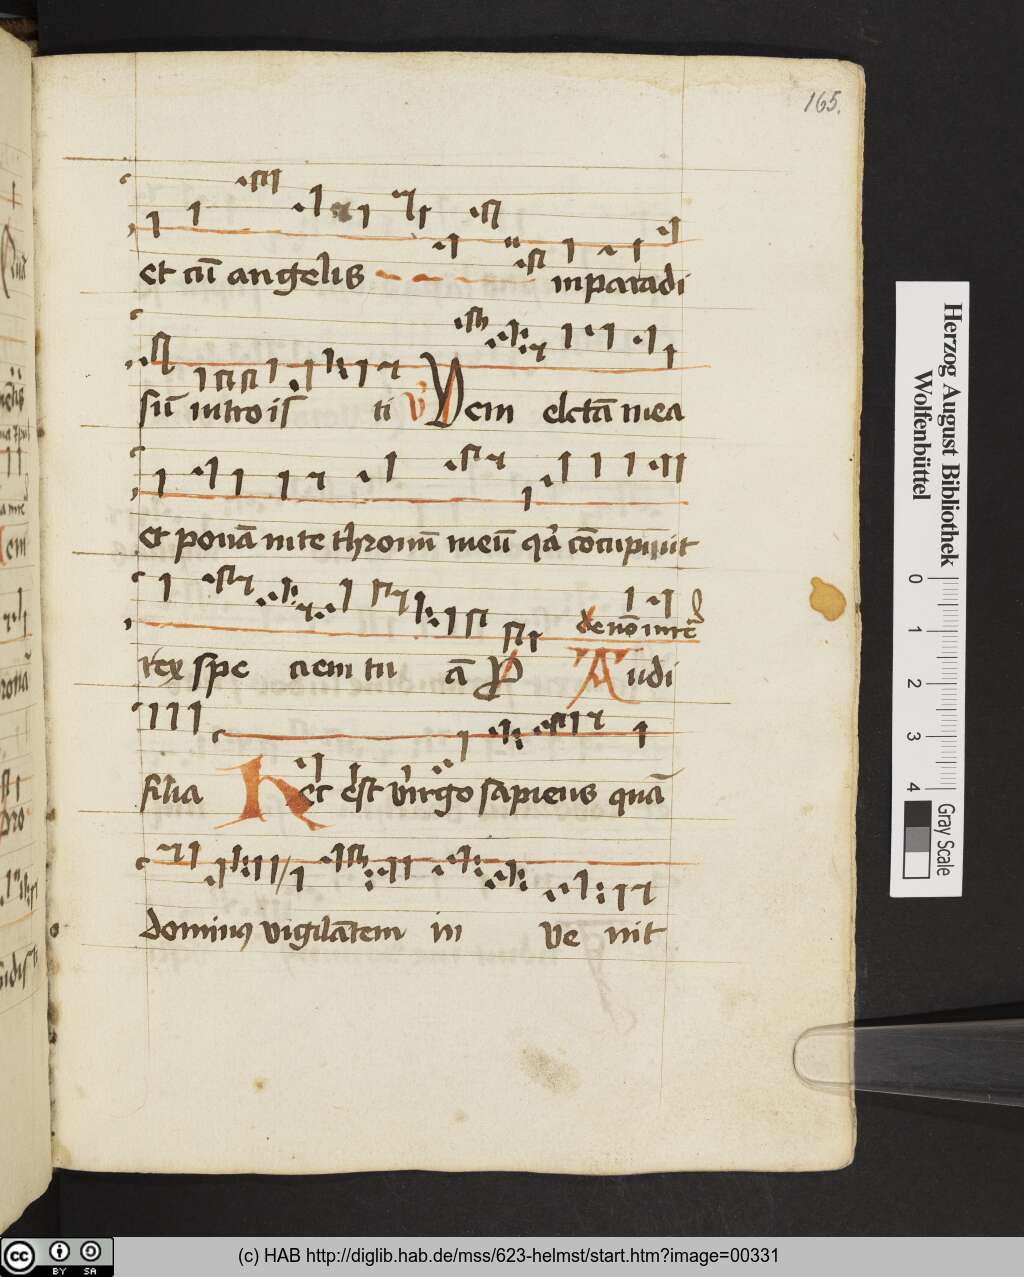 165.
et cū angelis inparadi
siū introis ti v Veni elctā mea
et ponā inte thronū meū qꝛ cōcupiuit
de nō inre
rex spe ciem tu ā P Audi
filia Hec est virgo sapiens quā
dominꝯ vigilātem in ve nit
Herzog August Bibliothek
Wolfenbüttel
0 1 2 3 4
Gray Scale
cc BY SA
(c) HAB http://diglib.hab.de/mss/623-helmst/start.htm?image=00331